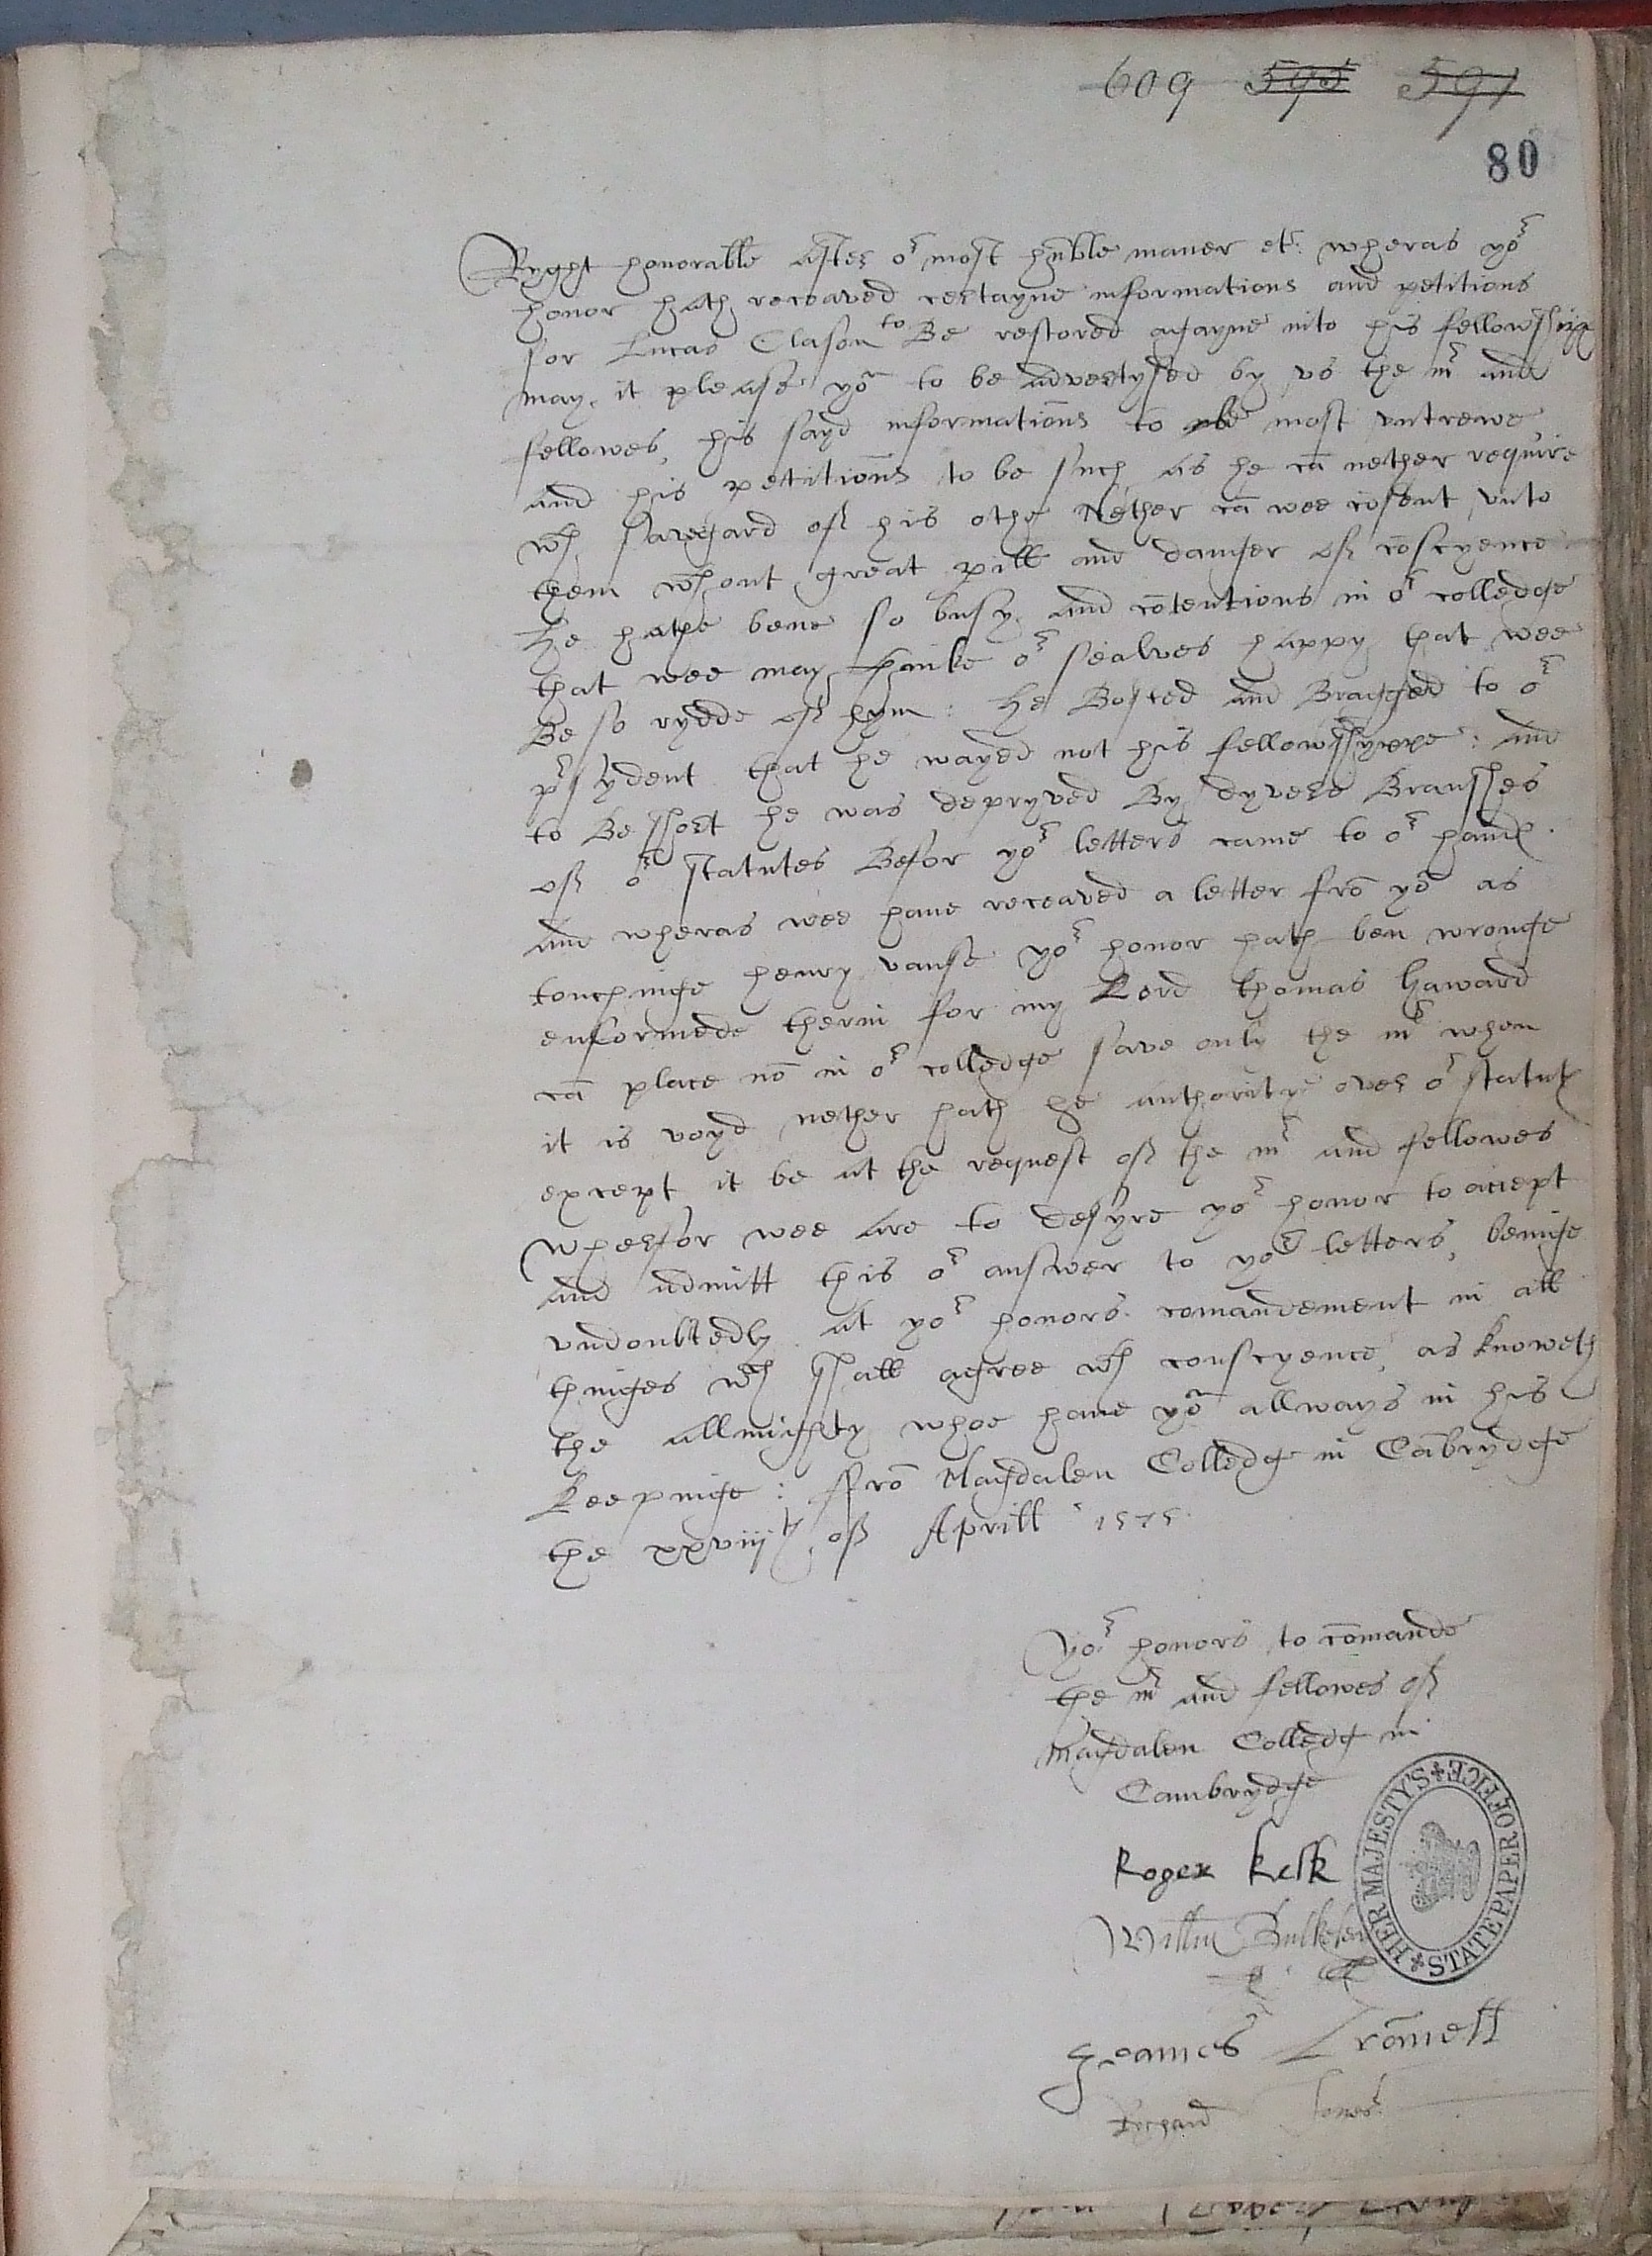 609 595 591
80
Ryght honorable after oʳ most hūble maner etᶜ: wheras yoʳ
honor hath receaved certayne informations and petitions
for Lucas Clason to Be restored agayne into his fellowshipe
may it please yoʳ to be advertysed by vs the mʳ and
fellowes, his sayd informatiōns to be most vntrewe
and his petitiōns to be such as he cā nether require
wth savegard off his othe Nether cā wee cōsent vnto
them wthout great pill and daunger off cōscyence
He hathe bene so busy and cōtentious in oʳ colledge
that wee may thinke oʳ sealves happy that wee
Be so rydde off hym: He Bosted and Bragged to oʳ
pʳsydent that he wayed not his fellowshyppe: And
to Be short he was depryved By dyverse Braunshes
off oʳ statutes Befor yoʳ letters came to oʳ handℓ.
And wheras wee haue receaved a letter frō yoʳ as
touchinge henry vause yoʳ honor hath ben wronge
enformede therin for my Lord thomas Haward
cā place nō in oʳ colledge save only the mʳ when
it is voyd nether hath he authoritye over oʳ statutℓ
except it be at the request off the mʳ and fellowes
Wherfor wee are to desyre yoʳ honor to accept
and admitt this oʳ answer to yoʳ letters, beinge
vndoubtedly at yoʳ honors comandement in all
thinges wch shall agree wth conscyence, as knoweth
the allmighty whoe haue yoʳ allways in his
keepinge: ffrō Magdalen Colledg in Cābrydge
the xxviijth off Aprill 1575.
Yoʳ honors to cōmande
the mʳ and fellowes off
Magdalen Colledg in
Cambrydge
Roger Kelk
Willm Bulkeley
Jeames Cromeff
Richard Jones
HER MAJESTY'S STATE PAPER OFFICE